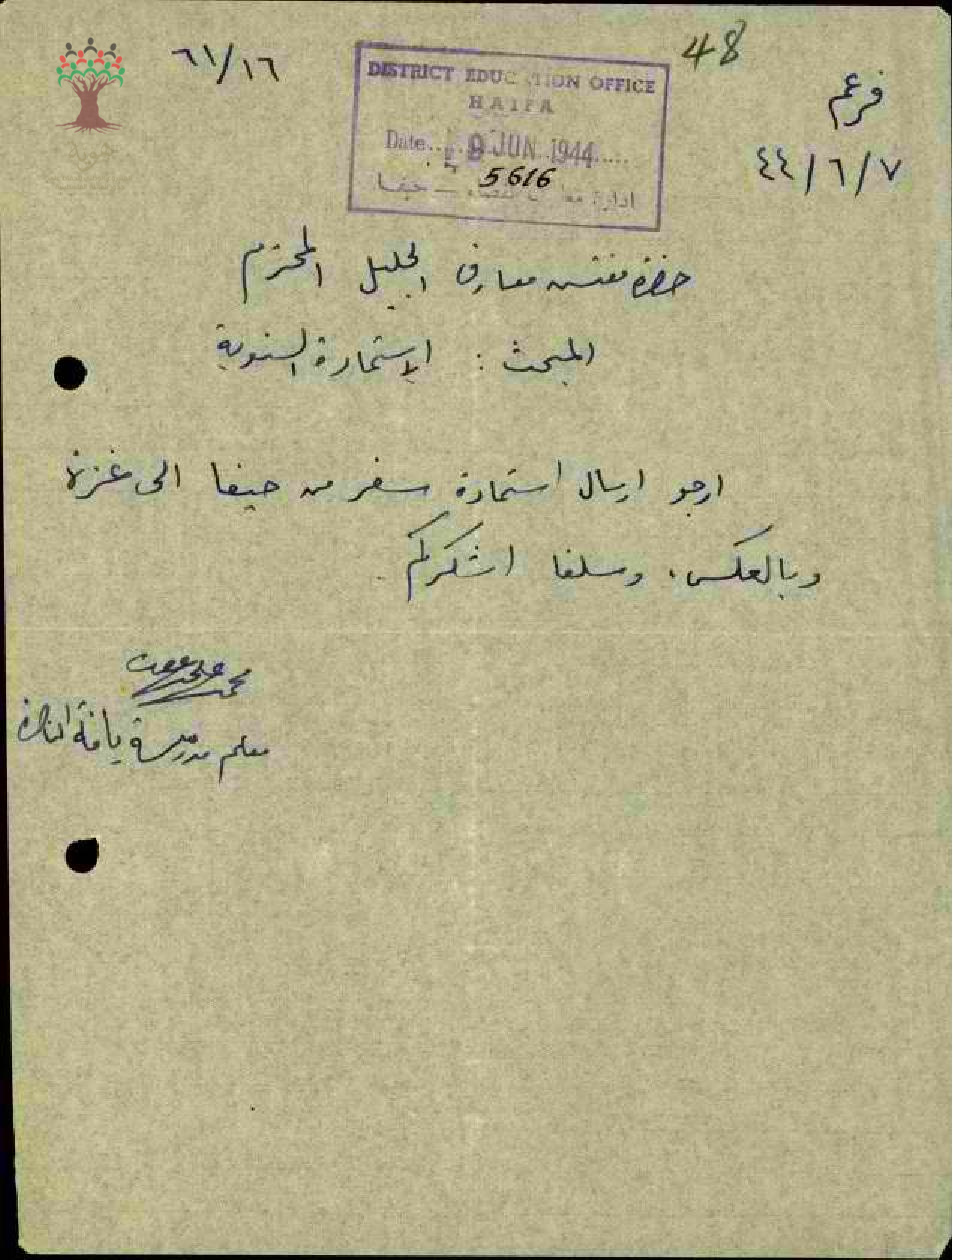 48
٦١/١٦
فرعم
٤٤/٦/٧
DISTRICT EDUCATION OFFICE
HAIFA
Date 9 JUN 1944
5616
ادارة حيفا
حضرة مفتش معارف الجليل المحترم
المبحث : الاستمارة السنوية
ارجو ارسال استمارة سفر من حيفا الى غزة
وبالعكس، وسلفا اشكركم.
محمد
معلم مدرسة يافة الناصرة